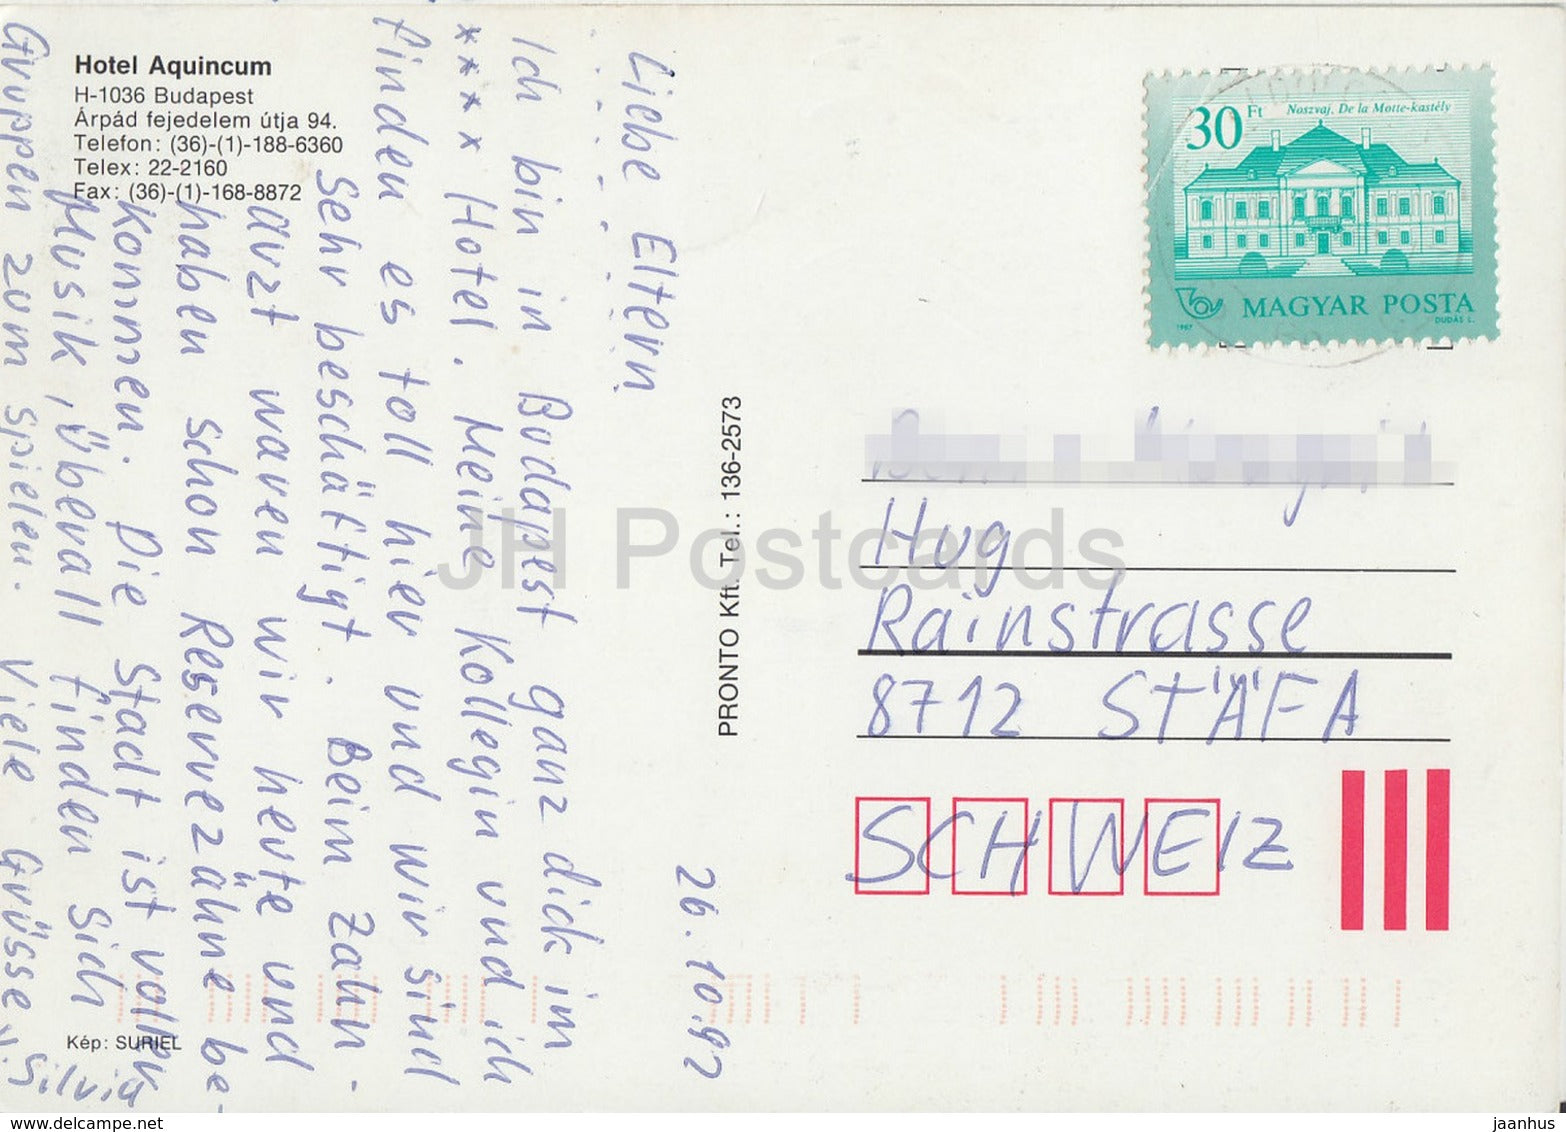 Hotel Aquincum
H-1036 Budapest
Árpád fejedelem útja 94.
Telefon: (36)-(1)-188-6360
Telex: 22-2160
Fax: (36)-(1)-168-8872
26.10.92
Liebe Eltern
Ich bin in Budapest ganz dick im
**** Hotel. Meine Kollegin und ich
finden es toll hier und wir sind
sehr beschäftigt. Beim Zahn-
arzt waren wir heute und
haben schon Reservezähne be-
kommen. Die Stadt ist voller
Musik, überall finden sich
Gruppen zum spielen. Viele Grüsse v.
Silvia
Kép: SURIEL
PRONTO Kft. Tel.: 136-2573
30 Ft
Noszvaj, De la Motte-kastély
MAGYAR POSTA
1987
DUDÁS L.
Hug
Rainstrasse
8712 STÄFA
SCHWEIZ
JH Postcards
www.delcampe.net
jaanhus